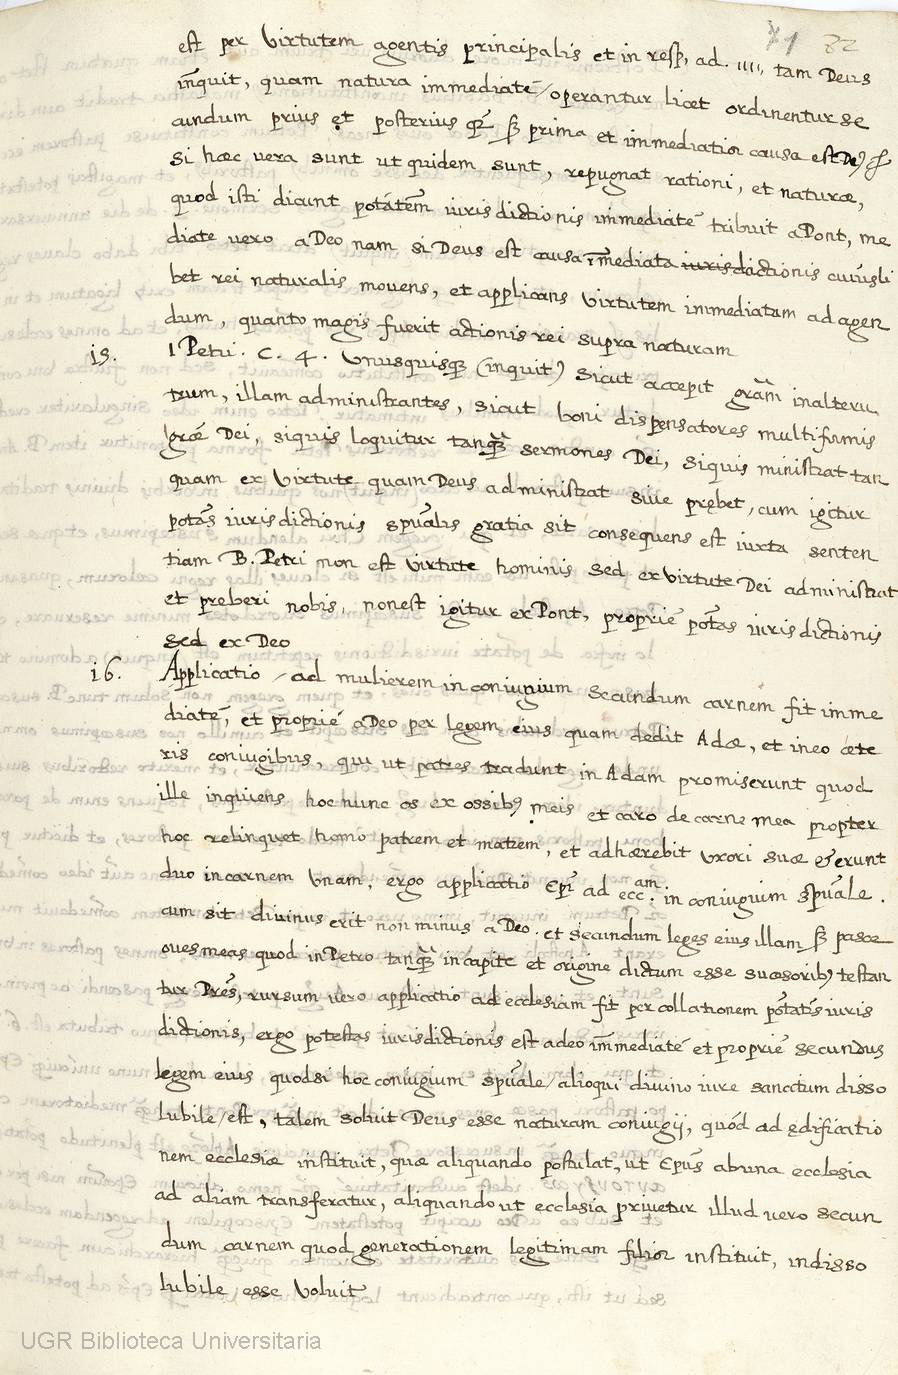 71 82
est per virtutem agentis principalis et in resp, ad. 1111, tam Deus
inquit, quam natura immediaté operantur licet ordinentur se
cundum prius et posterius qr̃ ꝑ prima et immediatior causa est
si hæc vera sunt ut quidem sunt, repugnat rationi, et naturæ,
quod isti dicunt potãtem iurisdictionis immediaté tribuit a Pont, me
diate vero a Deo nam si Deus est causa im̃ediata iurisdictionis cuiusli
bet rei naturalis movens, et applicans virtutem immediatam ad agen
dum, quanto magis fuerit actionis rei supra naturam
15. 1 Petri. C. 4. Unusquisq; (inquit) sicut accepit grãm in alteru
trum, illam administrantes, sicut boni dispensatores multiformis
græ Dei, siquis loquitur tanq̃ sermones Dei, siquis ministrat tan
quam ex virtute quam Deus administrat sive prębet, cum igitur
potãs iurisdictionis spũalis gratia sit consequens est iuxta senten
tiam B. Petri non est virtute hominis sed ex virtute Dei administrat
et preberi nobis, non est igitur ex Pont, proprié potãs iurisdictionis
sed ex Deo
16. Applicatio ad mulierem in coniugium secundum carnem fit imme
diaté, et proprié a Deo per legem eius quam dedit Adæ, et in eo cete
ris coniugibus, qui ut patres tradunt in Adam promiserunt quod
ille inquiens hoc nunc os ex ossibꝫ meis et caro de carne mea propter
hoc relinquet homo patrem et matrem, et adhærebit uxori suæ et erunt
duo in carnem unam, ergo applicatio Epĩ ad ecc.am in coniugium spũale.
cum sit divinus erit non minus a Deo. et secundum leges eius illam ꝑ pasce
oves meas quod in Petro tanq̃ in capite et origine dictum esse sucesoribꝫ testan
tur Prẽs, rursum vero applicatio ad ecclesiam fit per collationem potãtis iuris
dictionis, ergo potestas iurisdictionis est adeo im̃ediaté et proprié secundus
legem eius, quodsi hoc coniugium spũale alioqui divino iure sanctum disso
lubile est, talem soluit Deus esse naturam coniugij, quód ad ędificatio
nem ecclesiæ instituit, quæ aliquando postulat, ut Epũs ab una ecclesia
ad aliam transferatur, aliquando ut ecclesia privetur illud vero secun
dum carnem quod generationem legitimam filior instituit, indisso
lubile esse voluit
UGR Biblioteca Universitaria